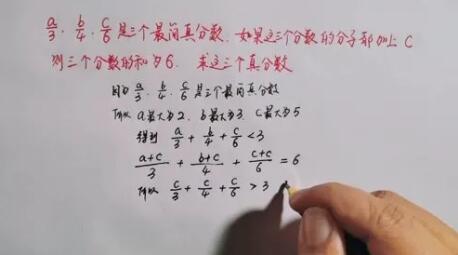 a/3、b/4、c/6是三个最简真分数,如果这三个分数的分子都加上c
则三个分数的和为6. 求这三个真分数
因为 a/3、b/4、c/6是三个最简真分数
所以 a最大为2、b最大为3、c最大为5
得到 a/3 + b/4 + c/6 < 3
(a+c)/3 + (b+c)/4 + (c+c)/6 = 6
所以 c/3 + c/4 + c/6 > 3